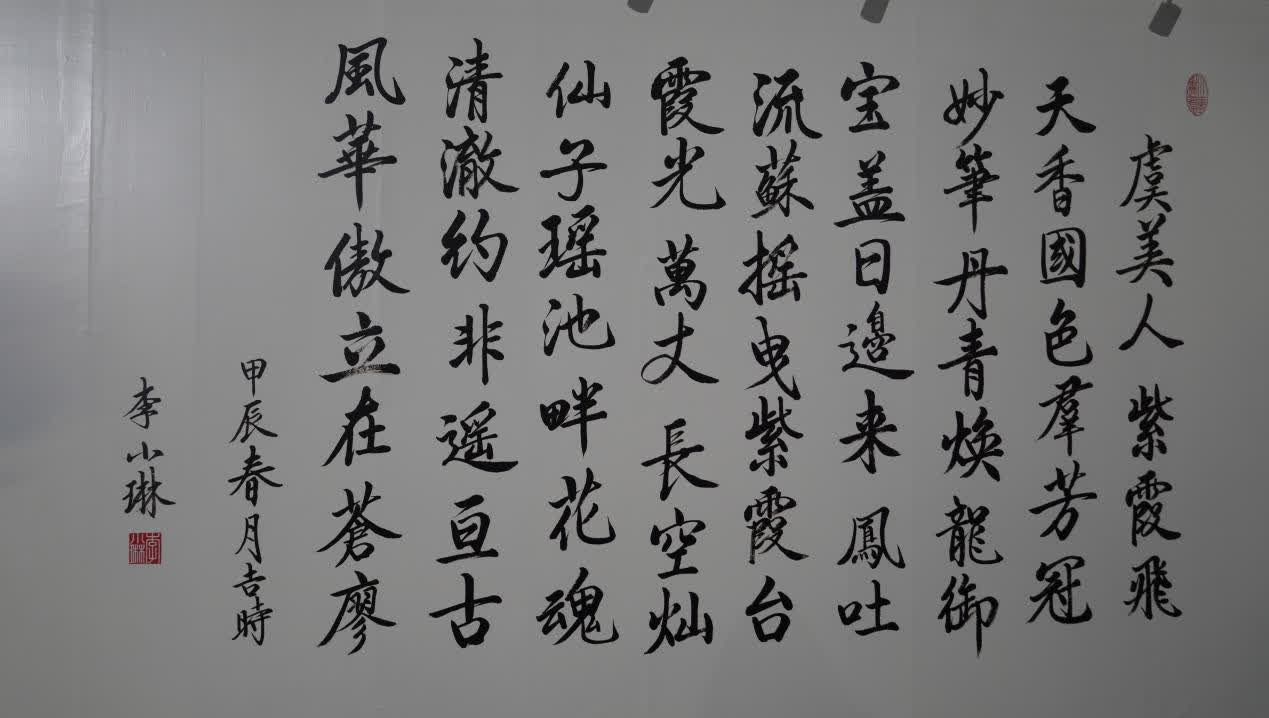 虞美人 紫霞飛
天香國色羣芳冠
妙筆丹青焕龍御
宝盖日邉来鳳吐
流蘇摇曳紫霞台
霞光萬丈長空灿
仙子瑶池畔花魂
清澈约非遥亘古
風華傲立在蒼廖
甲辰春月吉時
李小琳